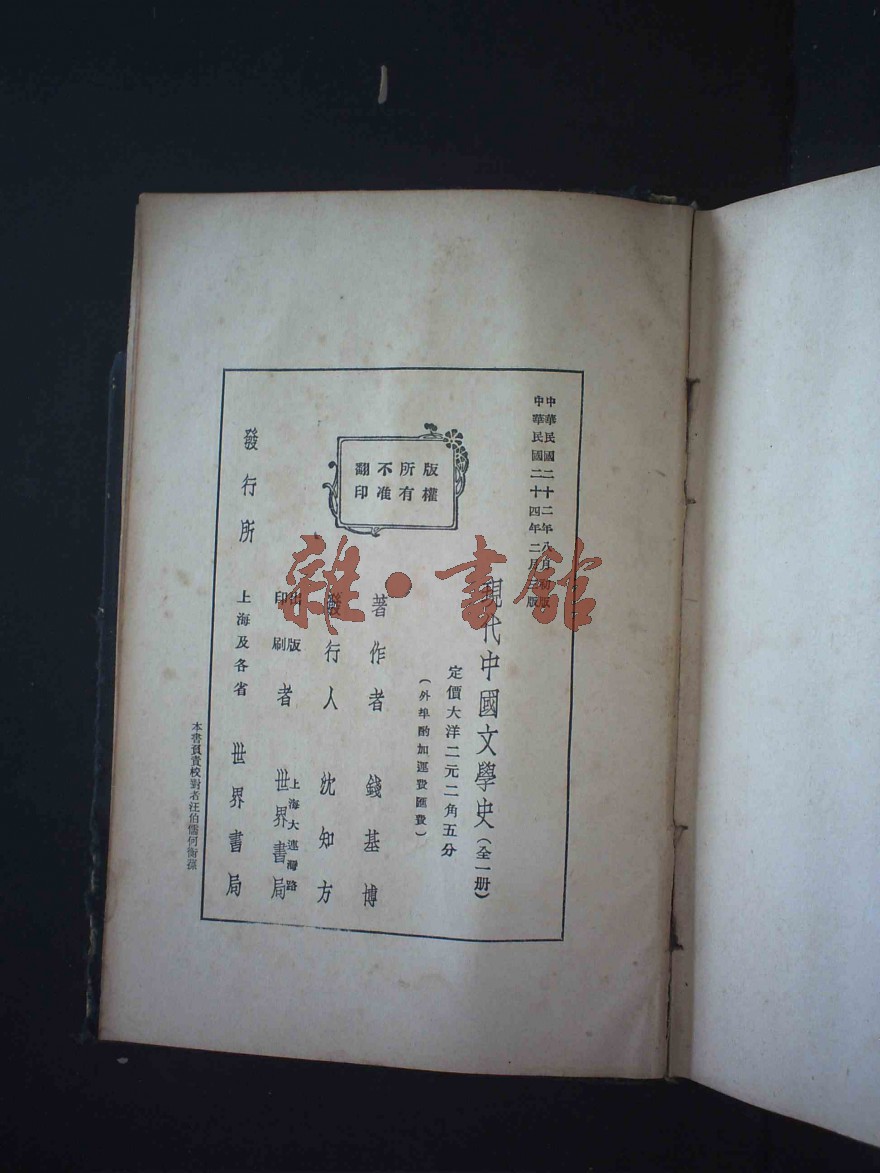 中華民國二十二年八月初版
中華民國二十四年二月版
現代中國文學史(全一册)
定價大洋二元二角五分
(外埠酌加運費匯費)
版權
所有
不准
翻印
著作者 錢基博
發行人 沈知方
出版印刷者 上海大連灣路 世界書局
發行所 上海及各省 世界書局
本書負責校對者汪伯何衡孫
雜·書館